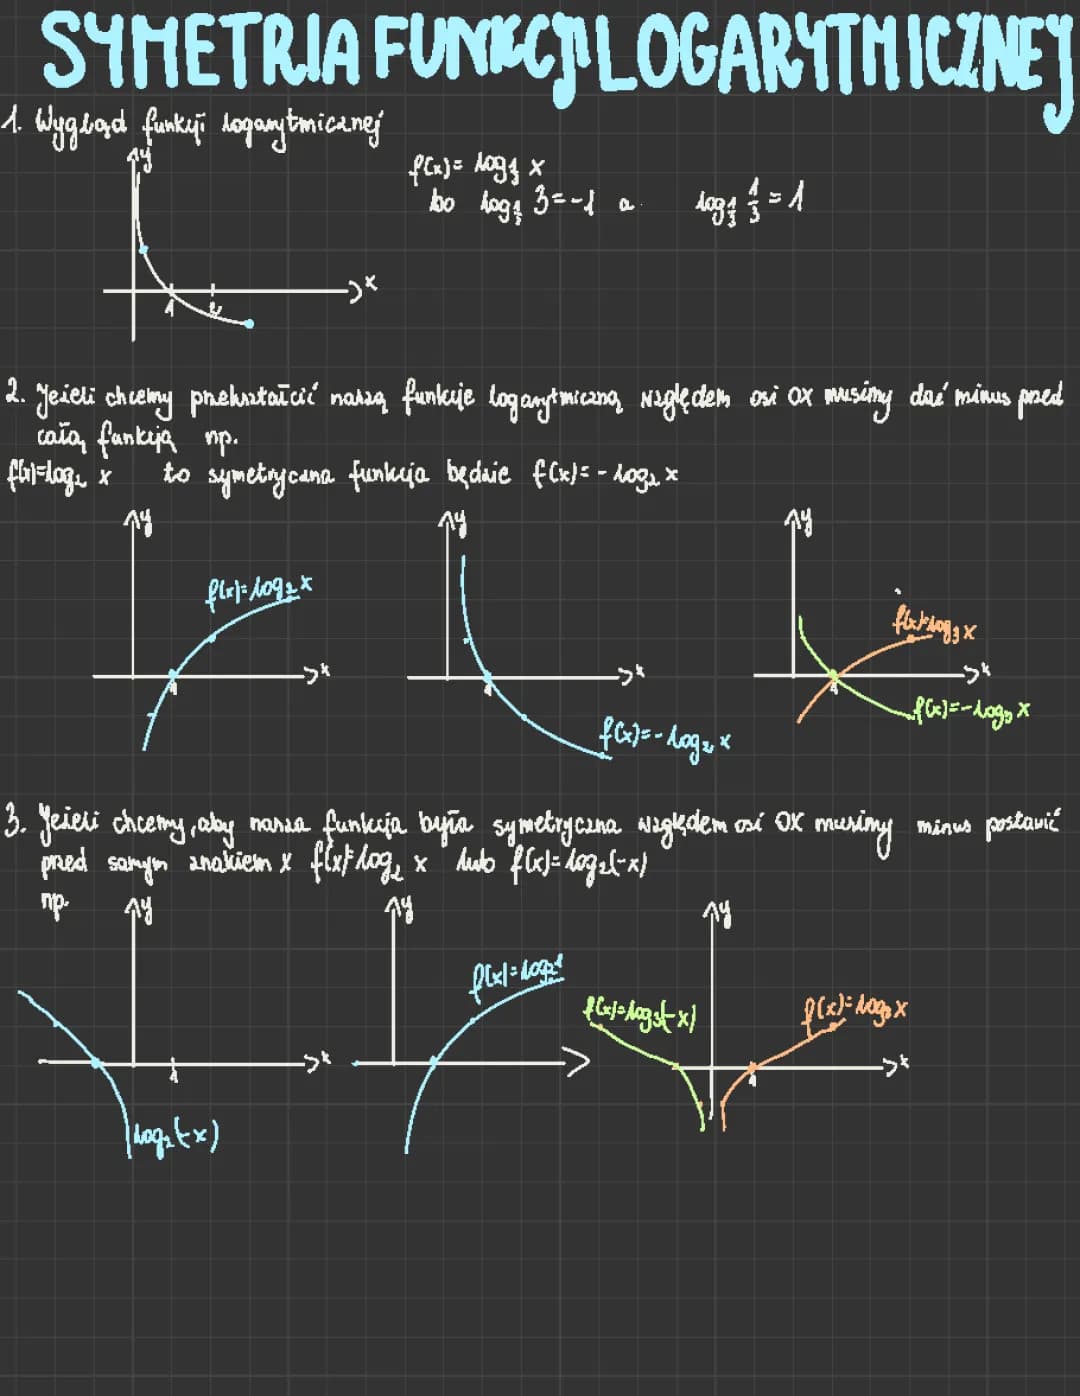 SYMETRIA FUNKCJI LOGARYTMICZNEJ
1. Wygląd funkcji logarytmicznej
y
f(x) = log⅓ x
bo log⅓ 3 = -1 a log⅓ ⅓ = 1
x
1 2
2. Jeżeli chcemy przekształcić naszą funkcje logarytmiczną względem osi OX musimy dać minus przed
całą funkcją np.
f(x)=log₂ x to symetryczna funkcja będzie f(x) = - log₂ x
y y y
f(x)=log₂ x
f(x)=log₃ x
x x x
1 1 1
f(x)=-log₃ x
f(x)=-log₂ x
3. Jeżeli chcemy, aby nasza funkcja była symetryczna względem osi OX musimy minus postawić
przed samym znakiem x f(x)=log₂ x lub f(x)=log₂(-x)
np. y y y
f(x)=log₃(-x) f(x)=log₃ x
x x
1 1
log₂(-x)